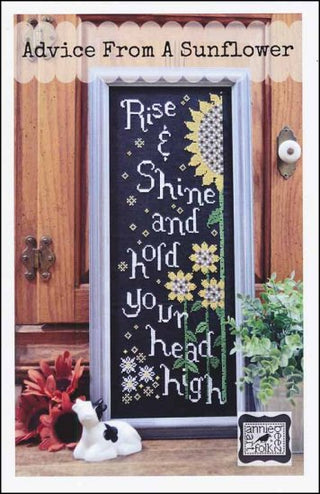 Advice From A Sunflower
Rise
&
Shine
and
hold
your
head
high
annie beez
folk art